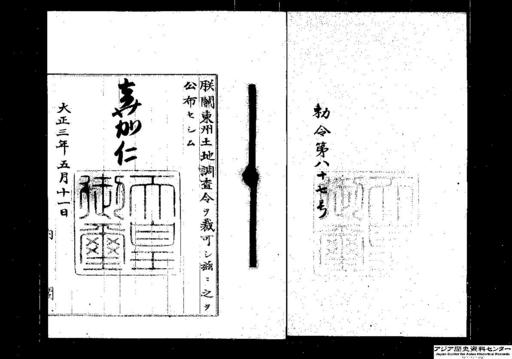 勅令第八十七号
朕關東州土地調査令ヲ裁可シ茲ニ之ヲ
公布セシム
嘉仁
天皇御璽
大正三年五月十一日
内閣
アジア歴史資料センター
Japan Center for Asian Historical Records